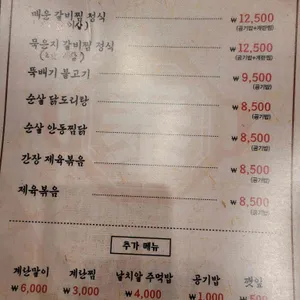 매운 갈비찜 정식 ₩ 12,500
(공기밥+계란찜)
묵은지 갈비찜 정식 ₩ 12,500
(공기밥+계란찜)
뚝배기 불고기 ₩ 9,500
(공기밥)
순살 닭도리탕 ₩ 8,500
(공기밥)
순살 안동찜닭 ₩ 8,500
(공기밥)
간장 제육볶음 ₩ 8,500
(공기밥)
제육볶음 ₩ 8,500
(공기밥)
추가 메뉴
계란말이 계란찜 날치알 주먹밥 공기밥 깻잎
₩ 6,000 ₩ 3,000 ₩ 4,000 ₩ 1,000 ₩ 500